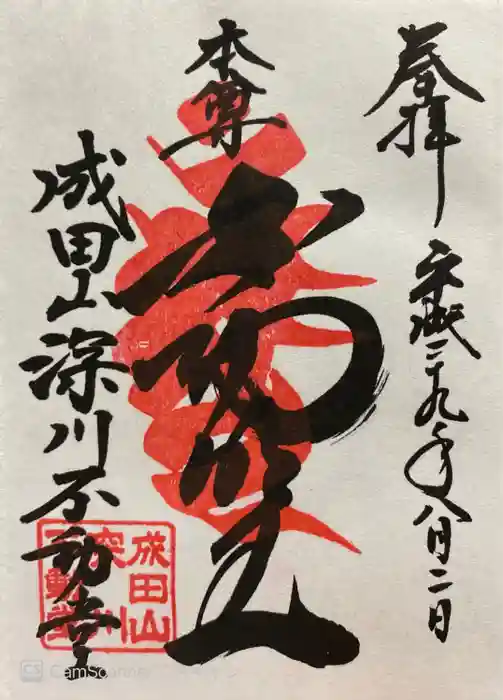 奉拝
平成二十九年八月二日
本尊
不動明王
成田山深川不動堂
成田山
深川
不動堂
CS CamScanner